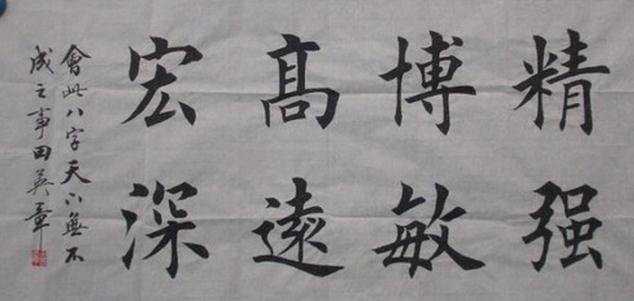 精强
博敏
髙遠
宏深
會此八字天下無不
成之事田英章